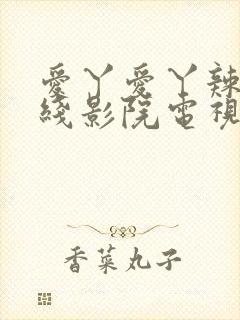 愛丫愛丫辣
綫影院電視
香菜丸子